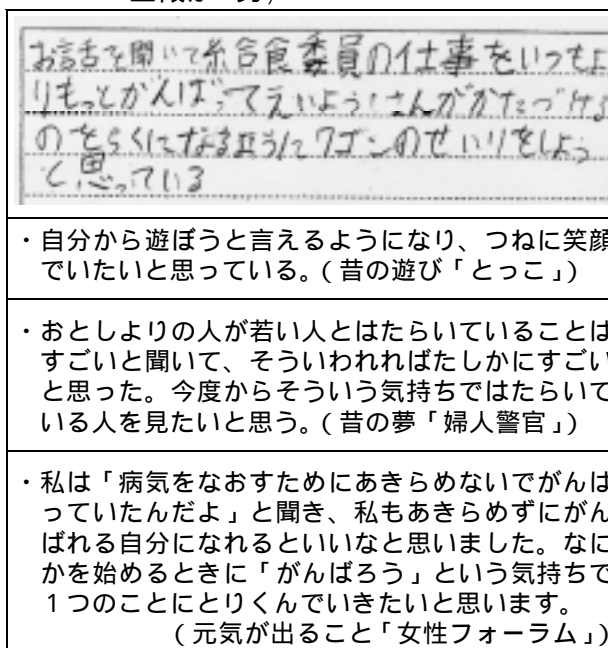 お話を聞いて給食委員の仕事をいつもよ
りもっとがんばってえいようしさんがかたづける
のをらくになるようにワゴンのせいりをしよう
と思っている
・自分から遊ぼうと言えるようになり、つねに笑顔
でいたいと思っている。(昔の遊び「とっこ」)
・おとしよりの人が若い人とはたらいていることは
すごいと聞いて、そういわれればたしかにすごい
と思った。今度からそういう気持ちではたらいて
いる人を見たいと思う。(昔の夢「婦人警官」)
・私は「病気をなおすためにあきらめないでがんば
っていたんだよ」と聞き、私もあきらめずにがん
ばれる自分になれるといいなと思いました。なに
かを始めるときに「がんばろう」という気持ちで
1つのことにとりくんでいきたいと思います。
(元気が出ること「女性フォーラム」)